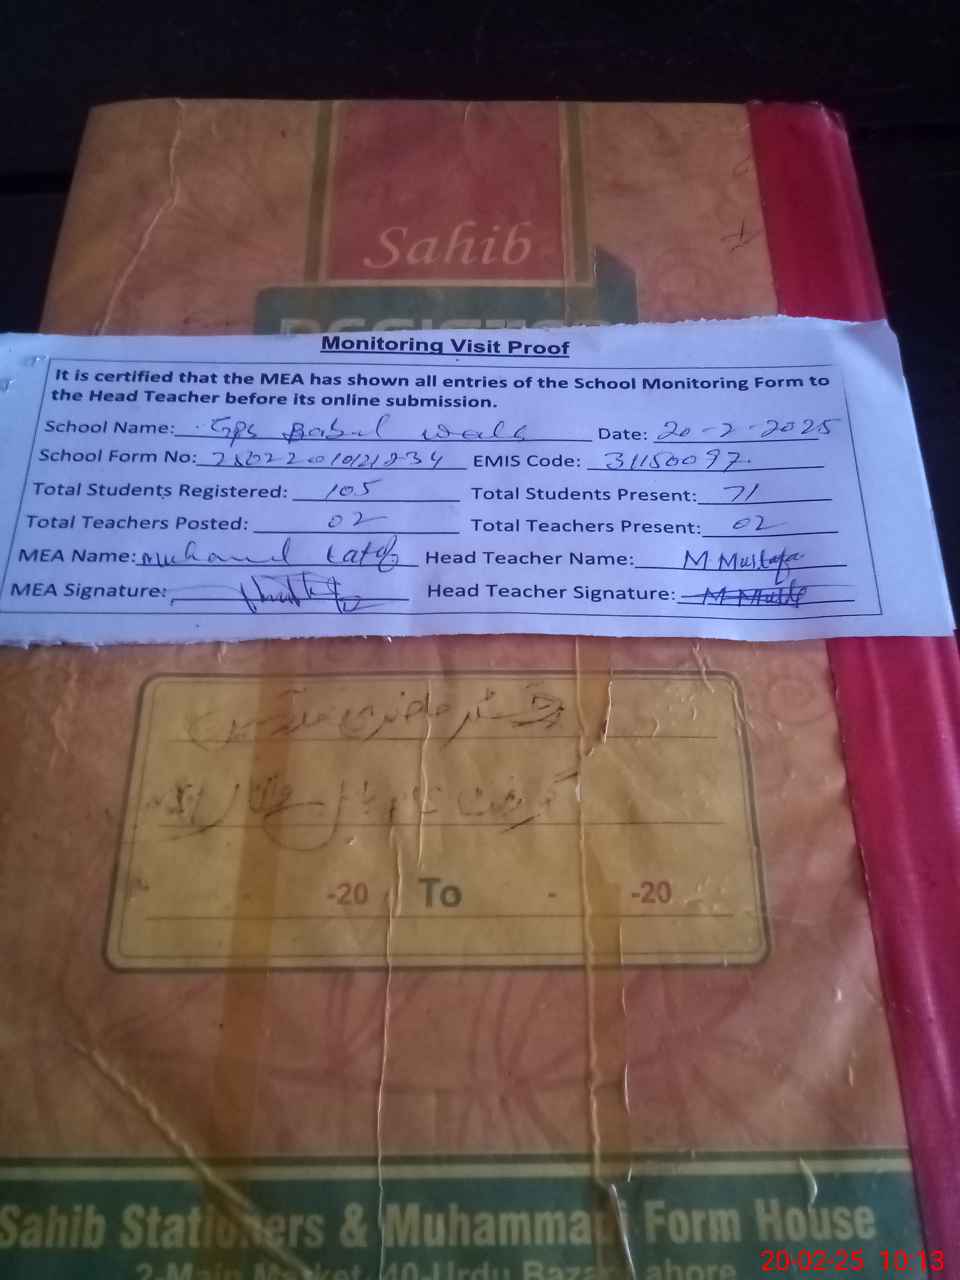 Sahib
REGISTER
Monitoring Visit Proof
It is certified that the MEA has shown all entries of the School Monitoring Form to
the Head Teacher before its online submission.
School Name: GPS Babul Wala Date: 20-2-2025
School Form No: EMIS Code: 31150097
Total Students Registered: 105 Total Students Present: 71
Total Teachers Posted: 02 Total Teachers Present: 02
MEA Name: Head Teacher Name: M Mustafa
MEA Signature: Head Teacher Signature:
رجسٹر حاضری مدرسین
گورنمنٹ
-20 To - -20
Sahib Stationers & Muhammad Form House
Market 40-Urdu Bazar Lahore
20-02-25 10:13